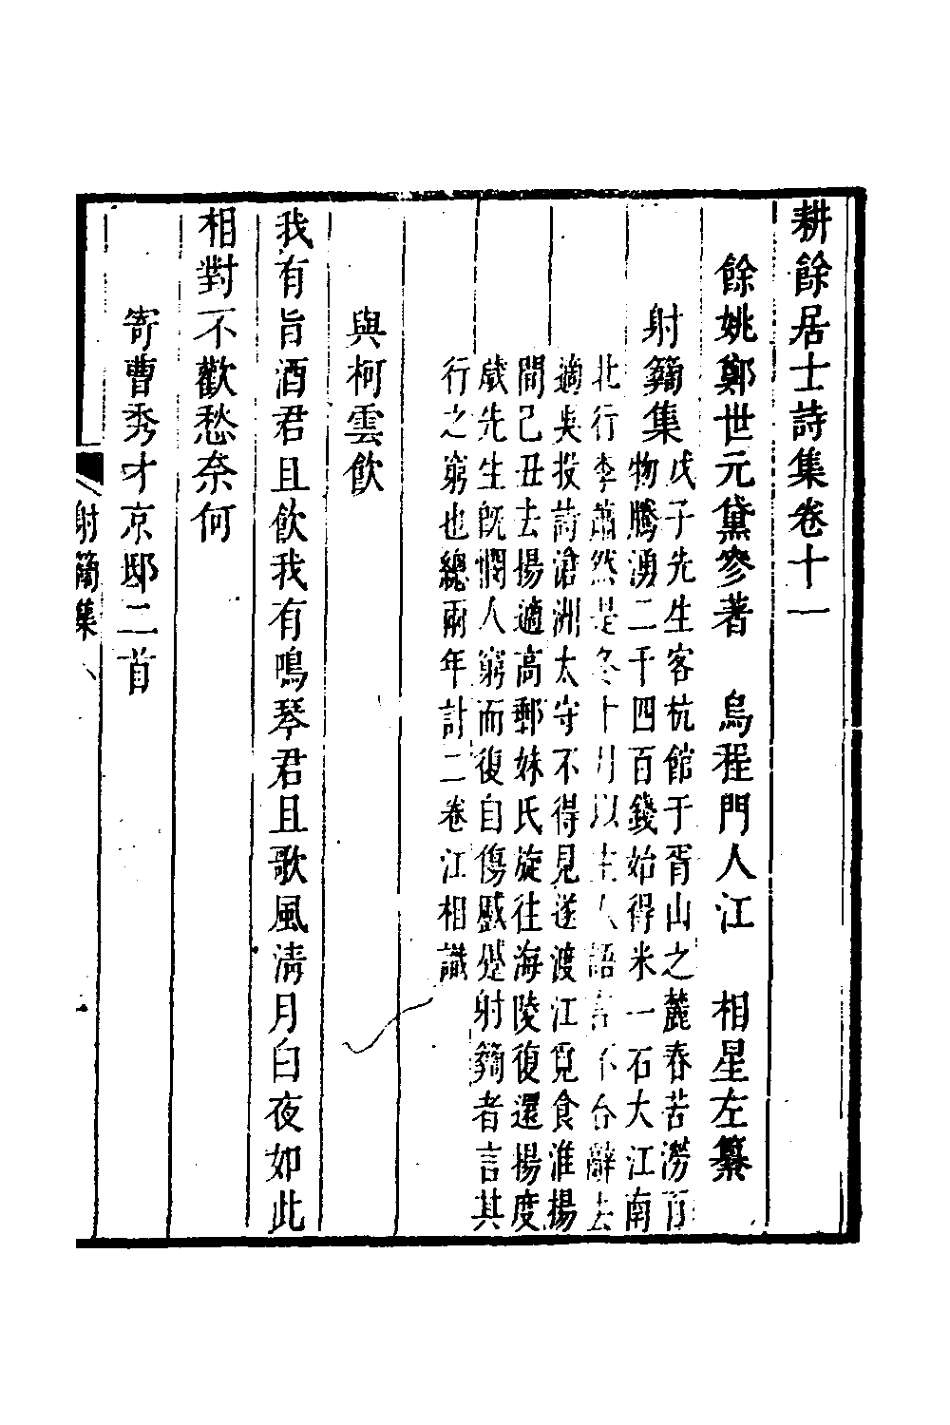 耕餘居士詩集卷十一
餘姚鄭世元黛參著　烏程門人江　相星左纂
射籋集
戊子先生客杭館于胥山之麓春苦澇百
物騰湧二千四百錢始得米一石大江南
北行李蕭然是冬十月以主人語言不合辭去
適吳投詩滄洲太守不得見遂渡江覓食淮揚
間己丑去揚適高郵妹氏旋往海陵復還揚度
歲先生旣憫人窮而復自傷慼迯射籋者言其
行之窮也總兩年計二卷江相識
與柯雲飮
我有旨酒君且飮我有鳴琴君且歌風淸月白夜如此
相對不歡愁奈何
寄曹秀才京邸二首
射籋集